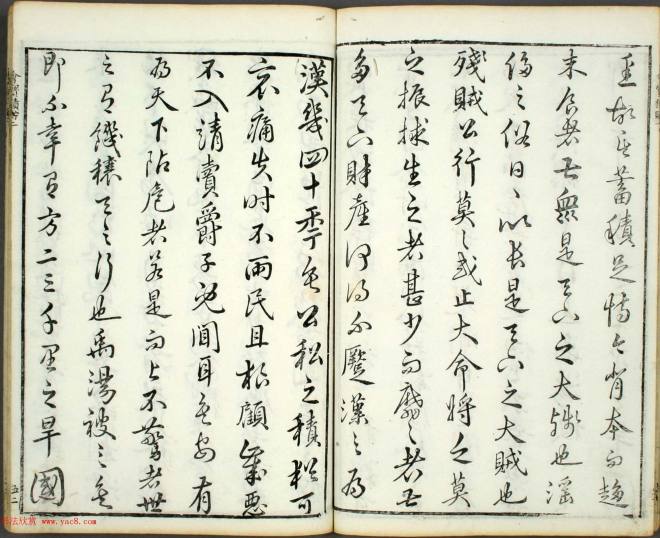 至故其蓄積足恃今背本而趨
末食者甚眾是天下之大殘也淫
侈之俗日〻以長是天下之大賊也
殘賊公行莫之或止大命將泛莫
之振救生之者甚少而靡之者甚
多天下財產何得不蹷漢之為
漢幾四十年矣公私之積猶可
哀痛失時不雨民且狼顧歲惡
不入請賣爵子既聞耳矣安有
為天下阽危者若是而上不驚者世
之有饑穰天之行也禹湯被之矣
即不幸有方二三千里之旱國
五二
法欣赏 www.yac8.com